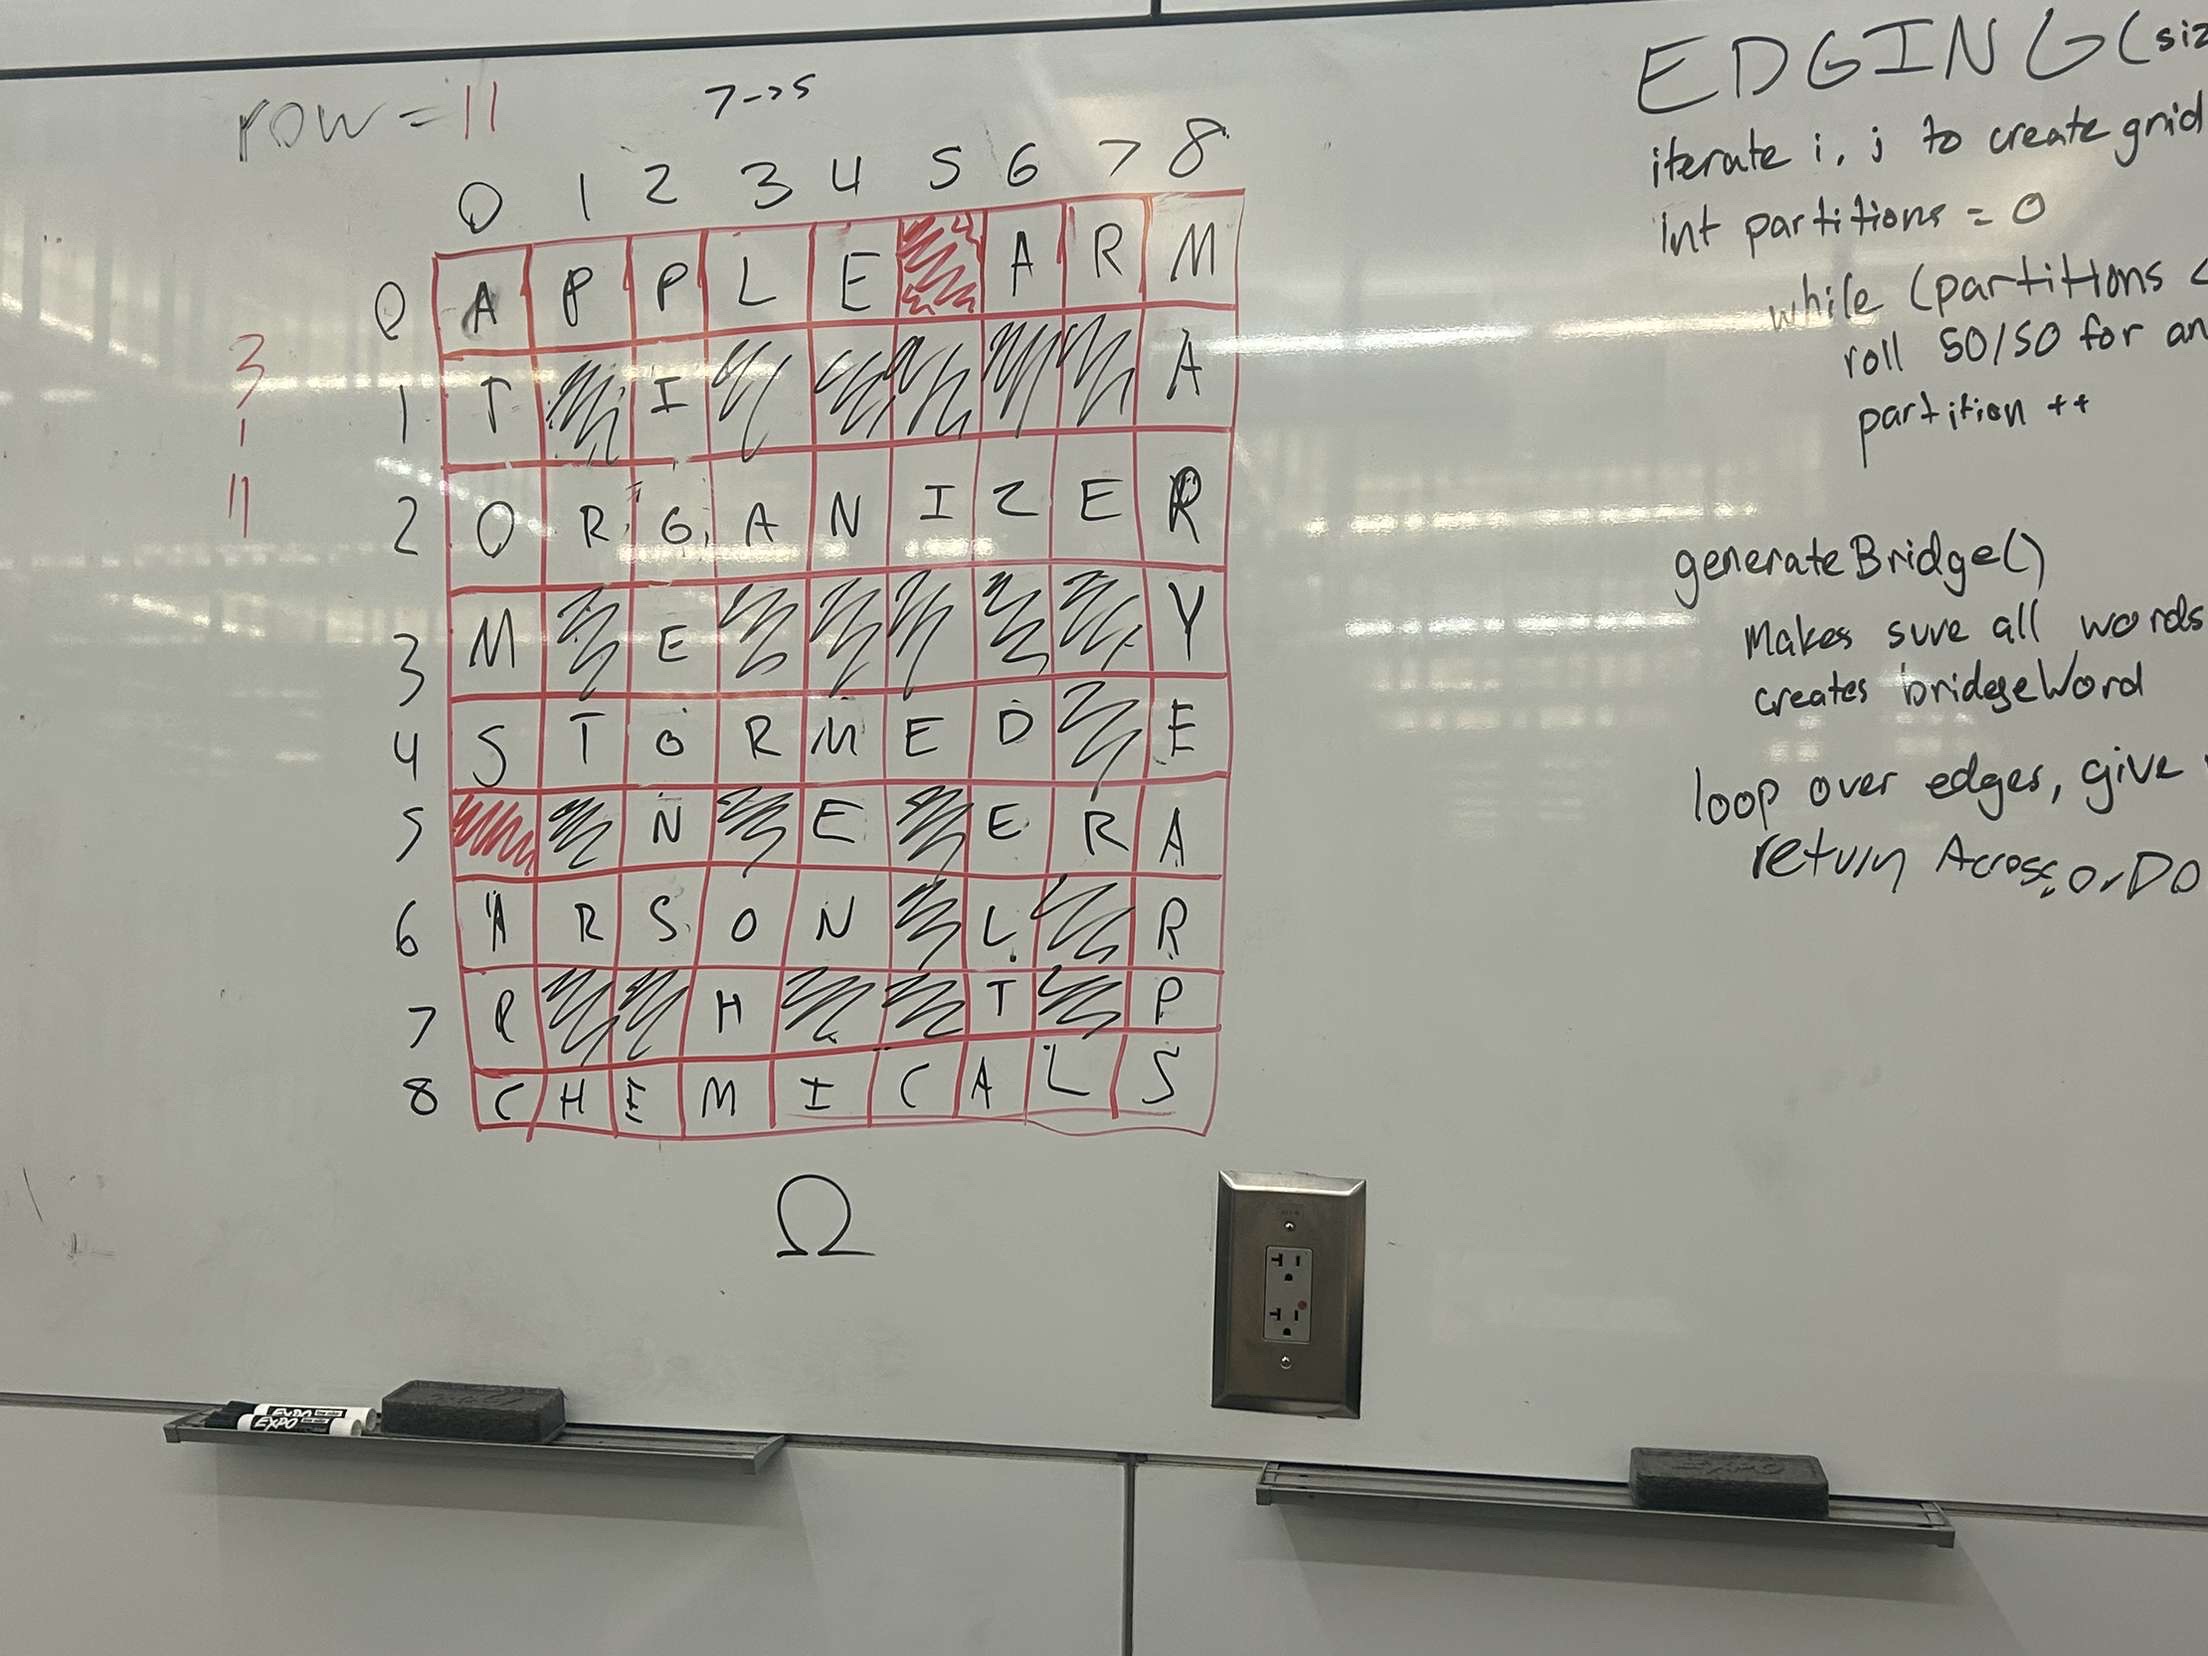 row = 11
7->5
0 1 2 3 4 5 6 7 8
0 A P P L E A R M
3
1
11
1 T I A
2 O R G A N I Z E R
3 M E Y
4 S T O R M E D E
5 N E E R A
6 A R S O N L R
7 H T P
8 C H E M I C A L S
Ω
EDGING(siz
iterate i, j to create grid
int partitions = 0
while (partitions <
roll 50/50 for an
partition ++
generateBridge()
Makes sure all words
creates bridgeWord
loop over edges, give
return Across, or DO
EXPO
EXPO